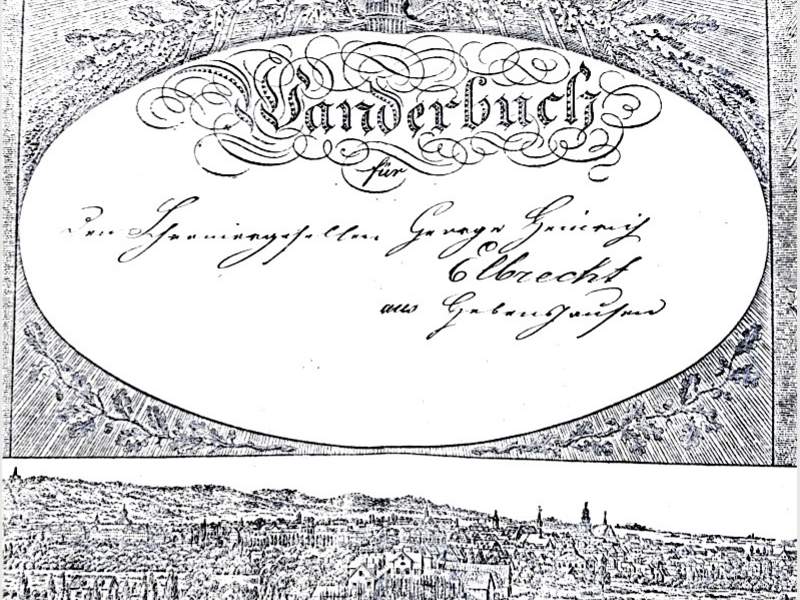 Wanderbuch
für
den Schreinergesellen George Heinrich
Elbrecht
aus Gebenshausen